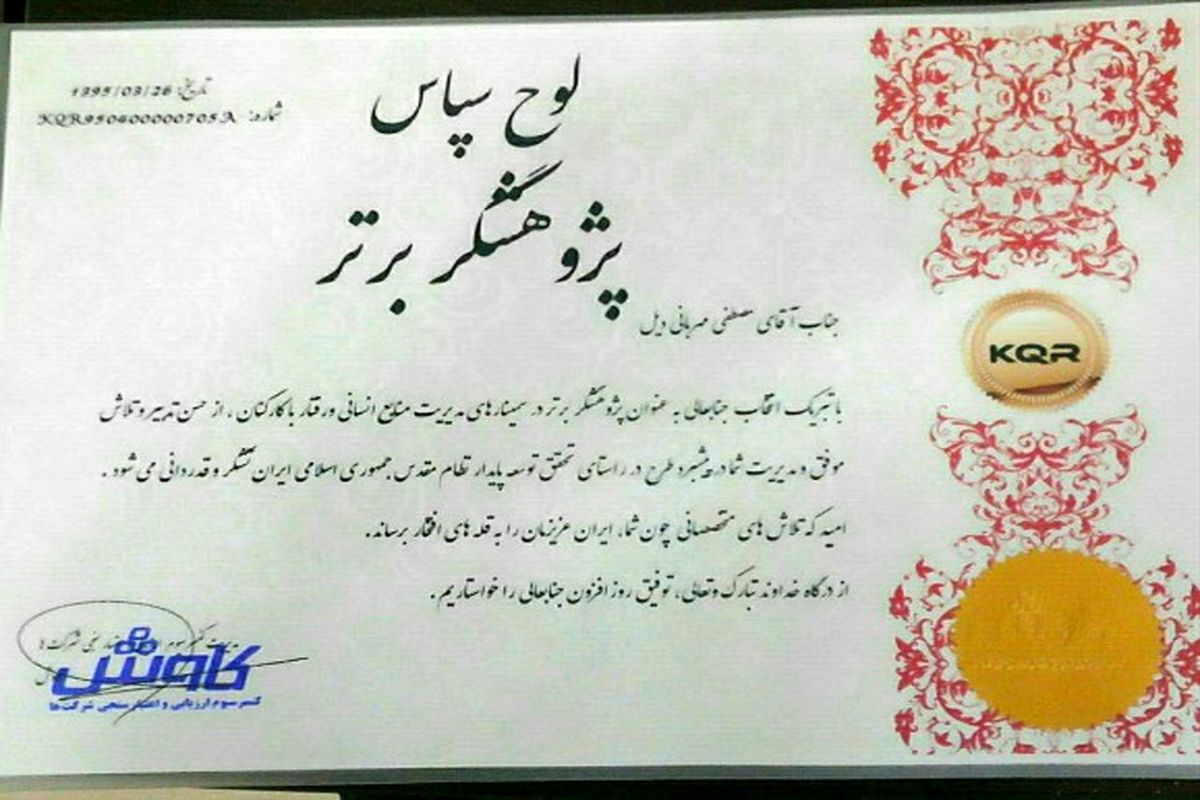 لوح سپاس
تاریخ: 1395/03/26
شماره: KQR950400000705A
پژوهشگر برتر
جناب آقای مصطفی مهربانی دیل
KQR
با تبریک انتخاب جنابعالی به عنوان پژوهشگر برتر در سمینارهای مدیریت منابع انسانی و رفتار با کارکنان ، از حسن تدبیر و تلاش
موفق و مدیریت شما در پیشبرد طرح در راستای تحقق توسعه پایدار نظام مقدس جمهوری اسلامی ایران تشکر و قدردانی می شود .
امید که تلاش های متخصصانی چون شما، ایران عزیزمان را به قله های افتخار برساند.
از درگاه خداوند تبارک وتعالی، توفیق روز افزون جنابعالی را خواستاریم.
کاوش
گستر سوم ارزیابی و اعتبار سنجی شرکت ها